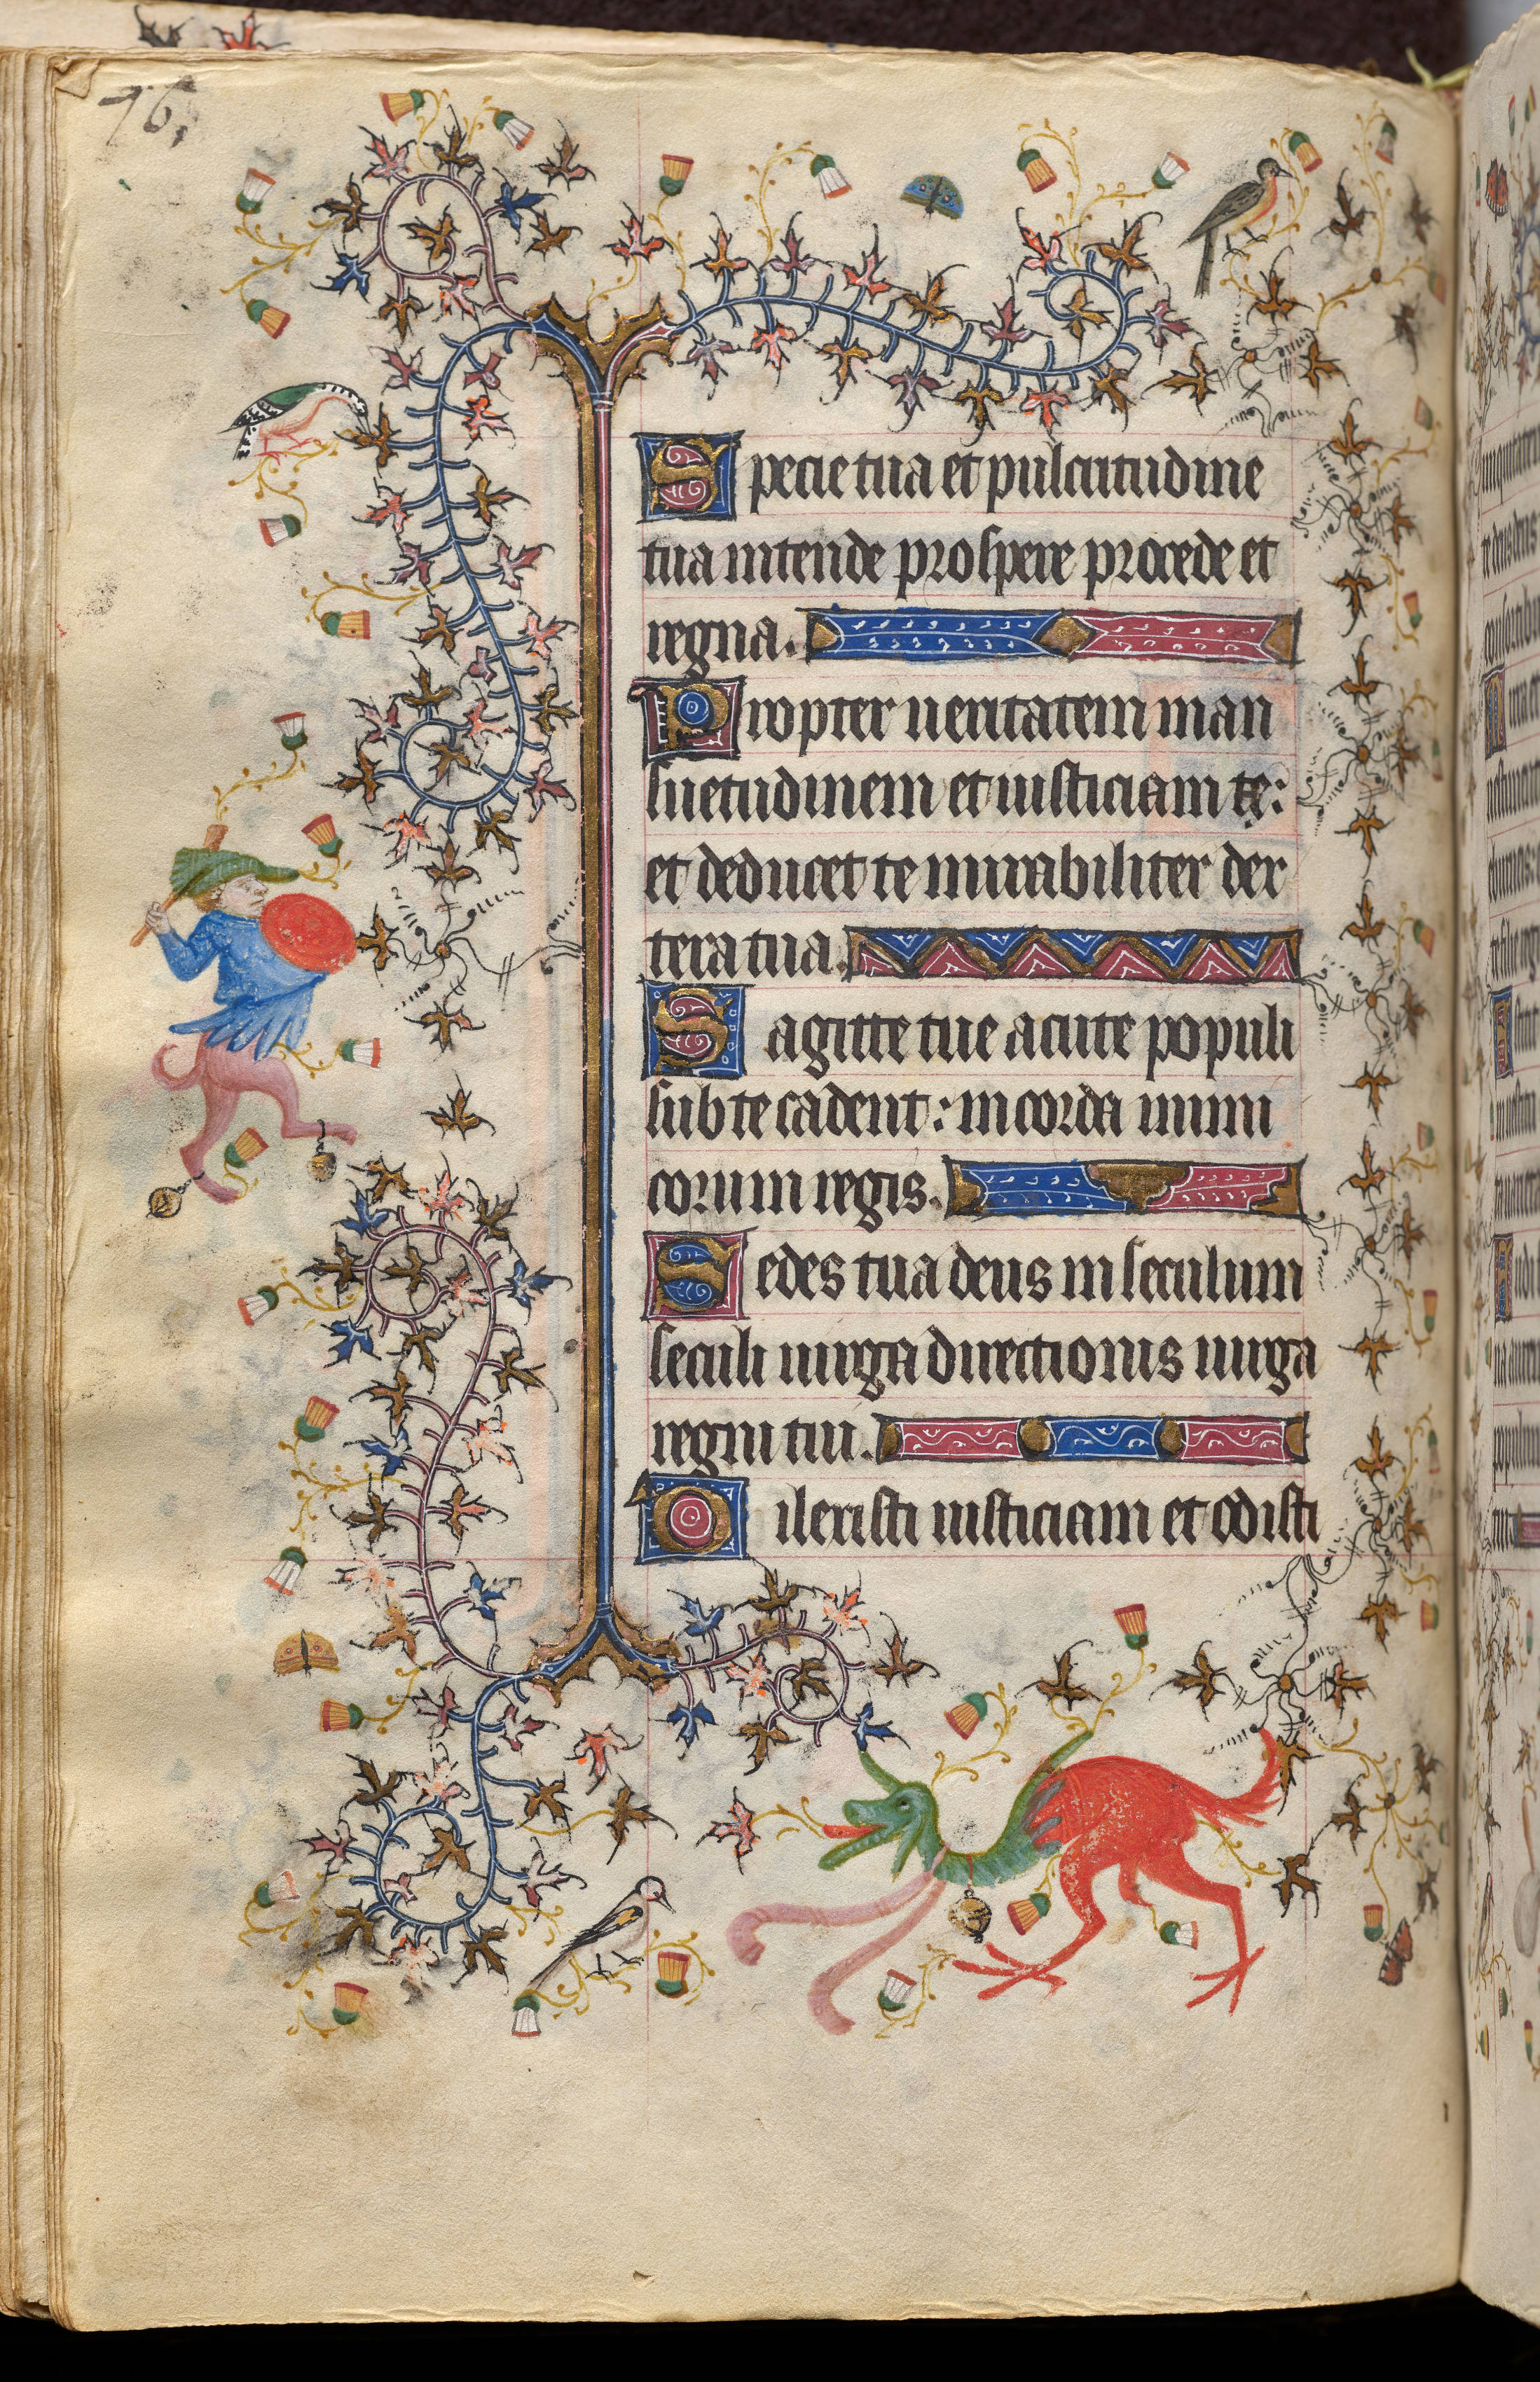 76,
Specie tua et pulcritudine
tua intende prospere procede et
regna.
Propter ueritatem man
suetudinem et iusticiam te:
et deducet te mirabiliter der
tera tua.
Sagitte tue acute populi
sub te cadent: in corda inimi
corum regis.
Sedes tua deus in seculum
seculi uirga directionis uirga
regni tui.
Dilexisti iusticiam et odisti